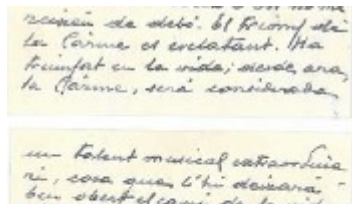 de debò. El triomf de
la Carme és esclatant. Ha
triomfat en la vida; desde ara,
la Carme, serà considerada
un talent musical extraordina
ri, cosa que li deixarà
ben obert el camí de la